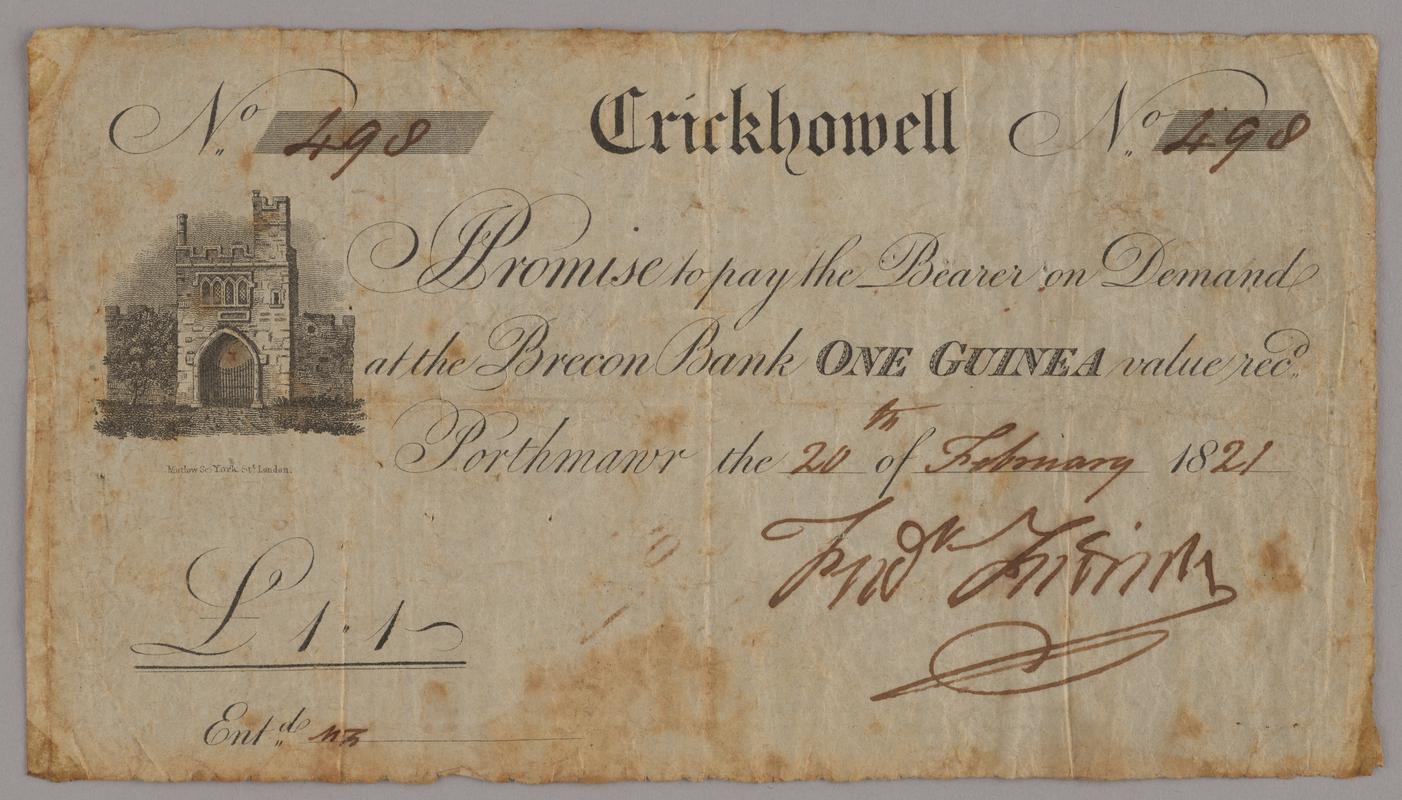 No. 498 Crickhowell No. 498
I Promise to pay the Bearer on Demand
at the Brecon Bank ONE GUINEA value recd.
Porthmawr the 20th of February 1821
Mutlow Sc. York St. London.
Fredk
£1.1
Entd.